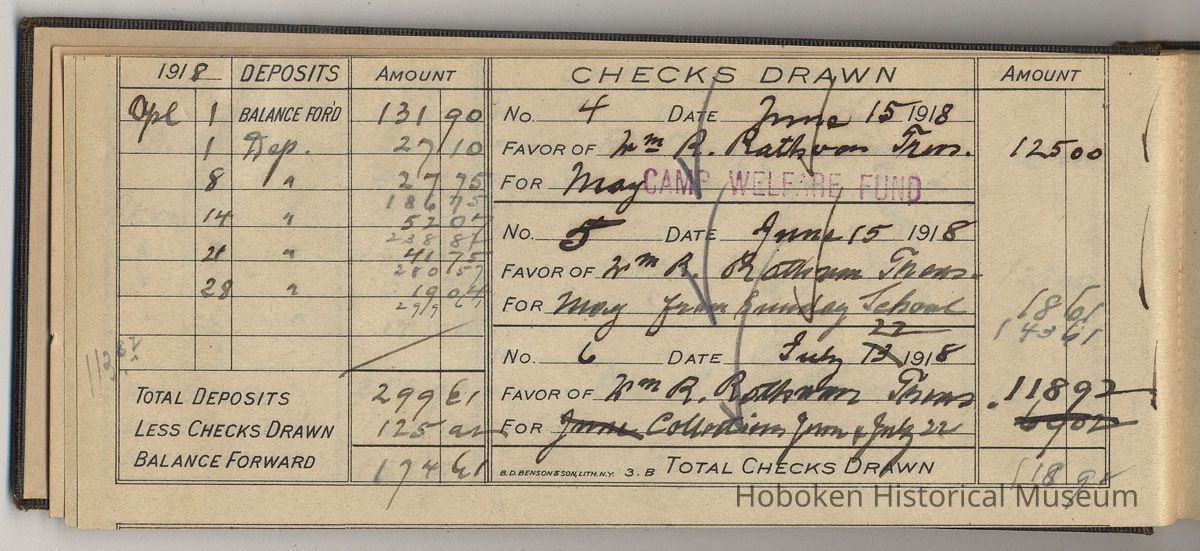 1918 DEPOSITS AMOUNT
Apl 1 BALANCE FOR'D 131 90
1 Dep. 27 10
8 " 27 75
186 75
14 " 52 07
238 82
21 " 41 75
280 57
28 " 19 04
299 61
TOTAL DEPOSITS 299 61
LESS CHECKS DRAWN 125
BALANCE FORWARD 174 61
CHECKS DRAWN AMOUNT
No. 4 DATE June 15 1918
FAVOR OF Wm R. Rathvon Treas. 125 00
FOR May CAMP WELFARE FUND
No. 5 DATE June 15 1918
FAVOR OF Wm R. Rathvon Treas.
FOR May from Sunday School 18 61
143 61
22
No. 6 DATE July 13 1918
FAVOR OF Wm R. Rathvon Treas 118 92
FOR June Collections June & July 22 69 02
B.D. BENSON & SON, LITH. N.Y. 3. B TOTAL CHECKS DRAWN 118 92
Hoboken Historical Museum